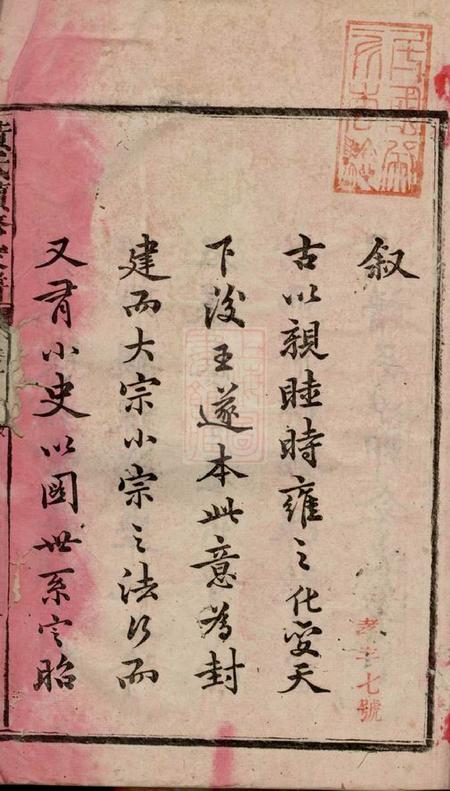 叙
古以親睦時雍之化變天
下後王遂本此意為封
建而大宗小宗之法行而
又有小史以國世系定昭
孝字七號